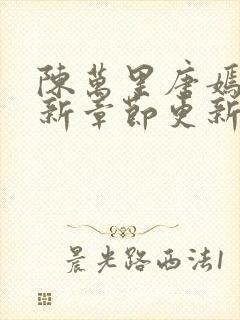 陳萬里唐嫣
新章節更新
晨光路西法1